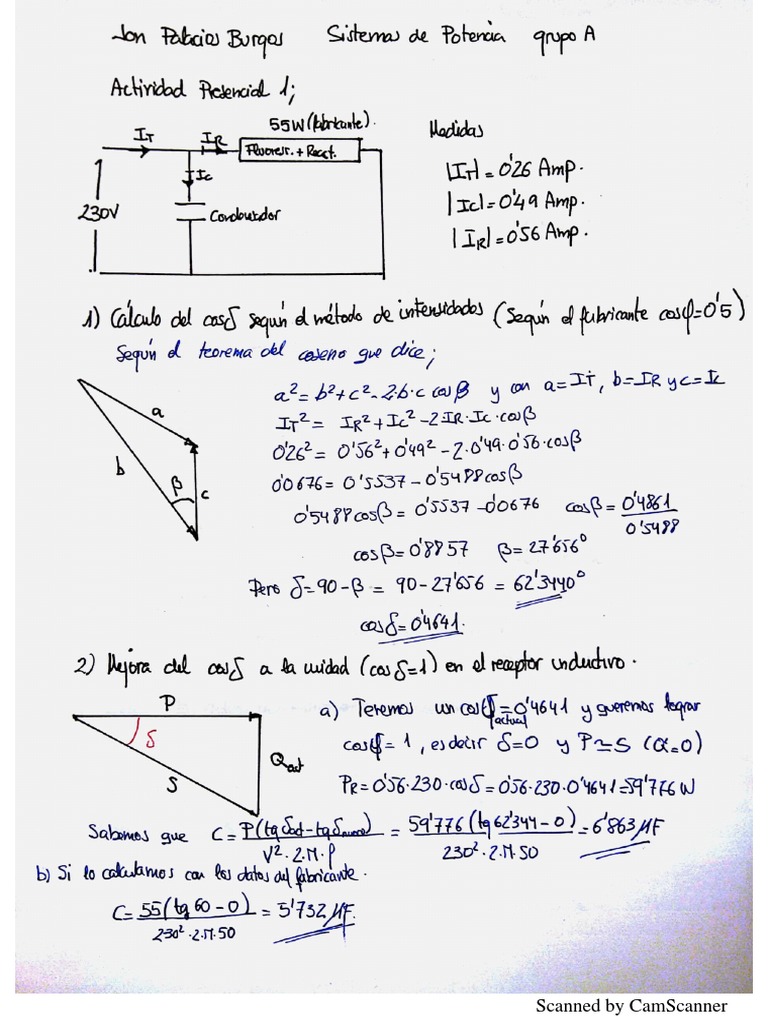 Jon Palacios Burgos Sistemas de Potencia grupo A
Actividad Presencial 1;
55W (fabricante).
IT IR Fluoresc. + React.
Ic
230V Condensador
Medidas
|IT| = 0'26 Amp.
|Ic| = 0'49 Amp.
|IR| = 0'56 Amp.
1) Cálculo del cosδ según el método de intensidades (Según el fabricante cosφ=0'5)
Según el teorema del coseno que dice;
a² = b² + c² - 2·b·c cosβ y con a=IT, b=IR y c=Ic
IT² = IR² + Ic² - 2IR·Ic·cosβ
0'26² = 0'56² + 0'49² - 2·0'49·0'56·cosβ
0'0676 = 0'5537 - 0'5488 cosβ
0'5488 cosβ = 0'5537 - 0'0676 cosβ = 0'4861 / 0'5488
cosβ = 0'8857 β = 27'656°
Pero δ = 90 - β = 90 - 27'656 = 62'3440°
cosδ = 0'4641.
a
b
β
c
2) Mejora del cosδ a la unidad (cosδ=1) en el receptor inductivo.
P
δ
S
Qact
a) Tenemos un cosφactual = 0'4641 y queremos lograr
cosφ = 1, es decir δ=0 y P≃S (Q=0)
PR = 0'56·230·cosδ = 0'56·230·0'4641 = 59'776 W
Sabemos que C = P(tgδact - tgδnuevo) / V²·2·π·f = 59'776 (tg 62'344 - 0) / 230²·2·π·50 = 6'863 μF
b) Si lo calculamos con los datos del fabricante.
C = 55(tg 60 - 0) / 230²·2·π·50 = 5'732 μF.
Scanned by CamScanner